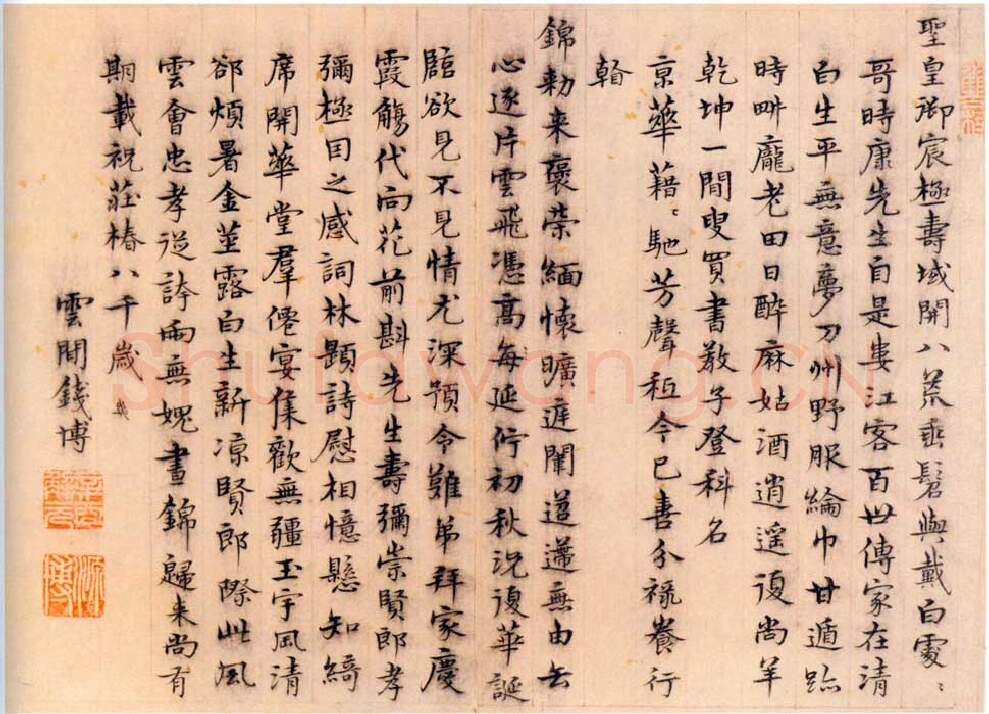 聖皇御宸極壽域開八荒垂髫與戴白處〻
哥時康先生自是婁江客百世傳家在清
白生平無意夢刀州野服綸巾甘遁跡
時畊龐老田日醉麻姑酒逍遥復尚羊
乾坤一閒叟買書教子登科名
京華藉〻馳芳聲秖今已喜分祿養行
錦勅来褒荣緬懷曠庭闈迢遰無由去
心逐片雲飛憑髙每延佇初秋況復華誕
臨欲見不見情尤深預令難弟拜家慶
霞觴代向花前斟先生壽彌崇賢郎孝
彌極因之感詞林題詩慰相憶懸知綺
席開華堂羣僊宴集歡無疆玉宇風清
郤煩暑金莖露白生新凉賢郎際此風
雲會忠孝從誇兩無媿晝錦歸来尚有
期載祝莊椿八千歲
雲間錢博
shufawang.cn